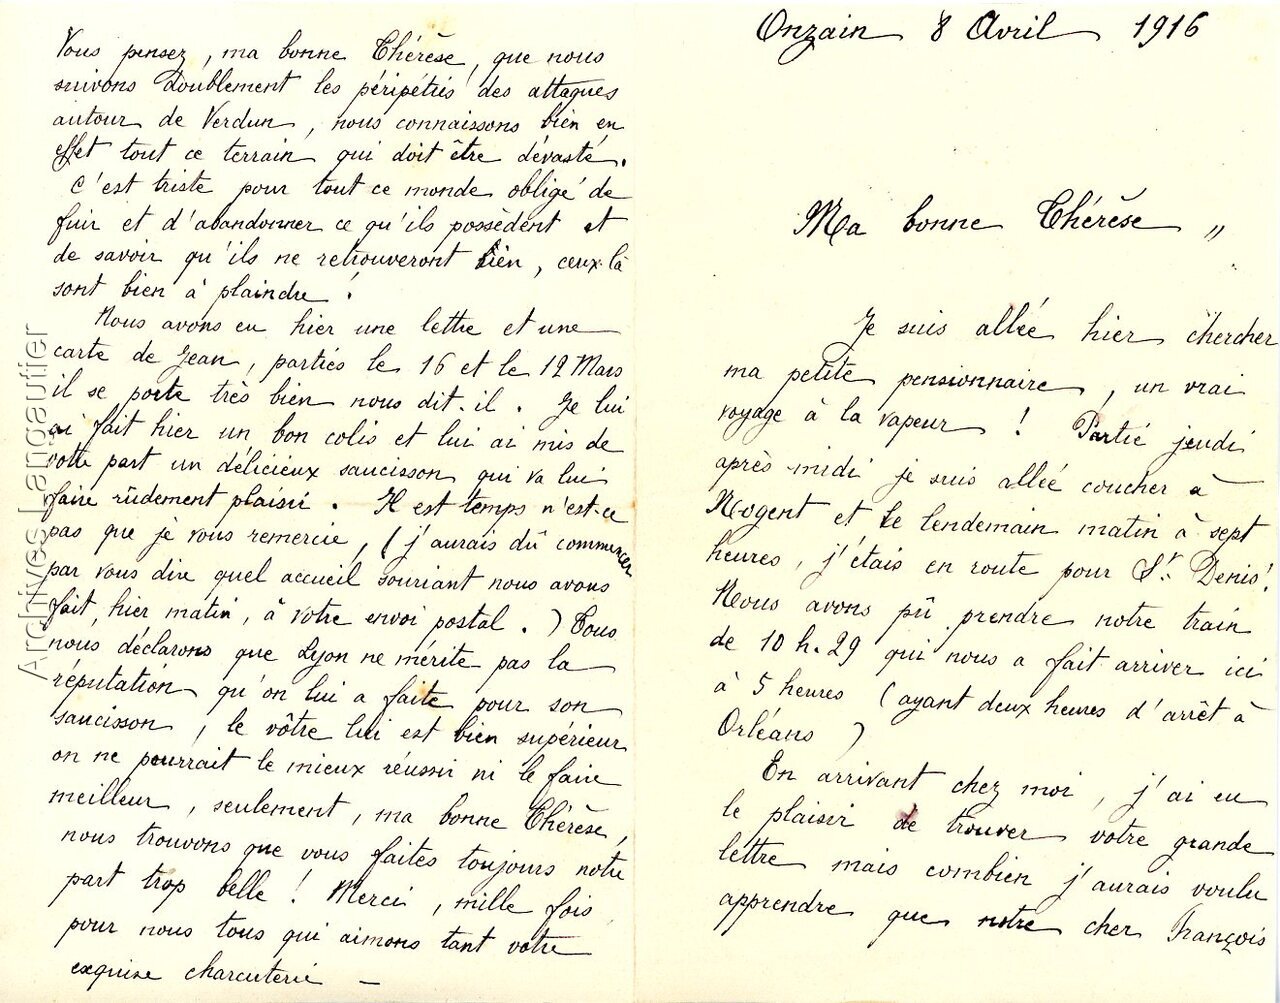 Onzain 8 Avril 1916
Ma bonne Thérèse,,
Je suis allée hier chercher
ma petite pensionnaire, un vrai
voyage à la vapeur ! Partie jeudi
après-midi je suis allée coucher à
Nogent et le lendemain matin à sept
heures, j'étais en route pour St. Denis !
Nous avons pû prendre notre train
de 10 h. 29 qui nous a fait arriver ici
à 5 heures (ayant deux heures d'arrêt à
Orléans )
En arrivant chez moi, j'ai eu
le plaisir de trouver votre grande
lettre mais combien j'aurais voulu
apprendre que notre cher François
Vous pensez, ma bonne Thérèse, que nous
suivons doublement les péripéties des attaques
autour de Verdun, nous connaissons bien en
effet tout ce terrain qui doit être dévasté.
C'est triste pour tout ce monde obligé de
fuir et d'abandonner ce qu'ils possèdent et
de savoir qu'ils ne retrouveront rien, ceux-là
sont bien à plaindre !
Nous avons eu hier une lettre et une
carte de Jean, parties le 16 et le 12 Mars
il se porte très bien nous dit-il. Je lui
ai fait hier un bon colis et lui ai mis de
votre part un délicieux saucisson qui va lui
faire rudement plaisir. Il est temps n'est-ce
pas que je vous remercie, (j'aurais dû commencer
par vous dire quel accueil souriant nous avons
fait, hier matin, à votre envoi postal.) Tous
nous déclarons que Lyon ne mérite pas la
réputation qu'on lui a faite pour son
saucisson, le vôtre lui est bien supérieur
on ne pourrait le mieux réussir ni le faire
meilleur, seulement, ma bonne Thérèse,
nous trouvons que vous faites toujours notre
part trop belle ! Merci, mille fois
pour nous tous qui aimons tant votre
exquise charcuterie -
Archives Langautier